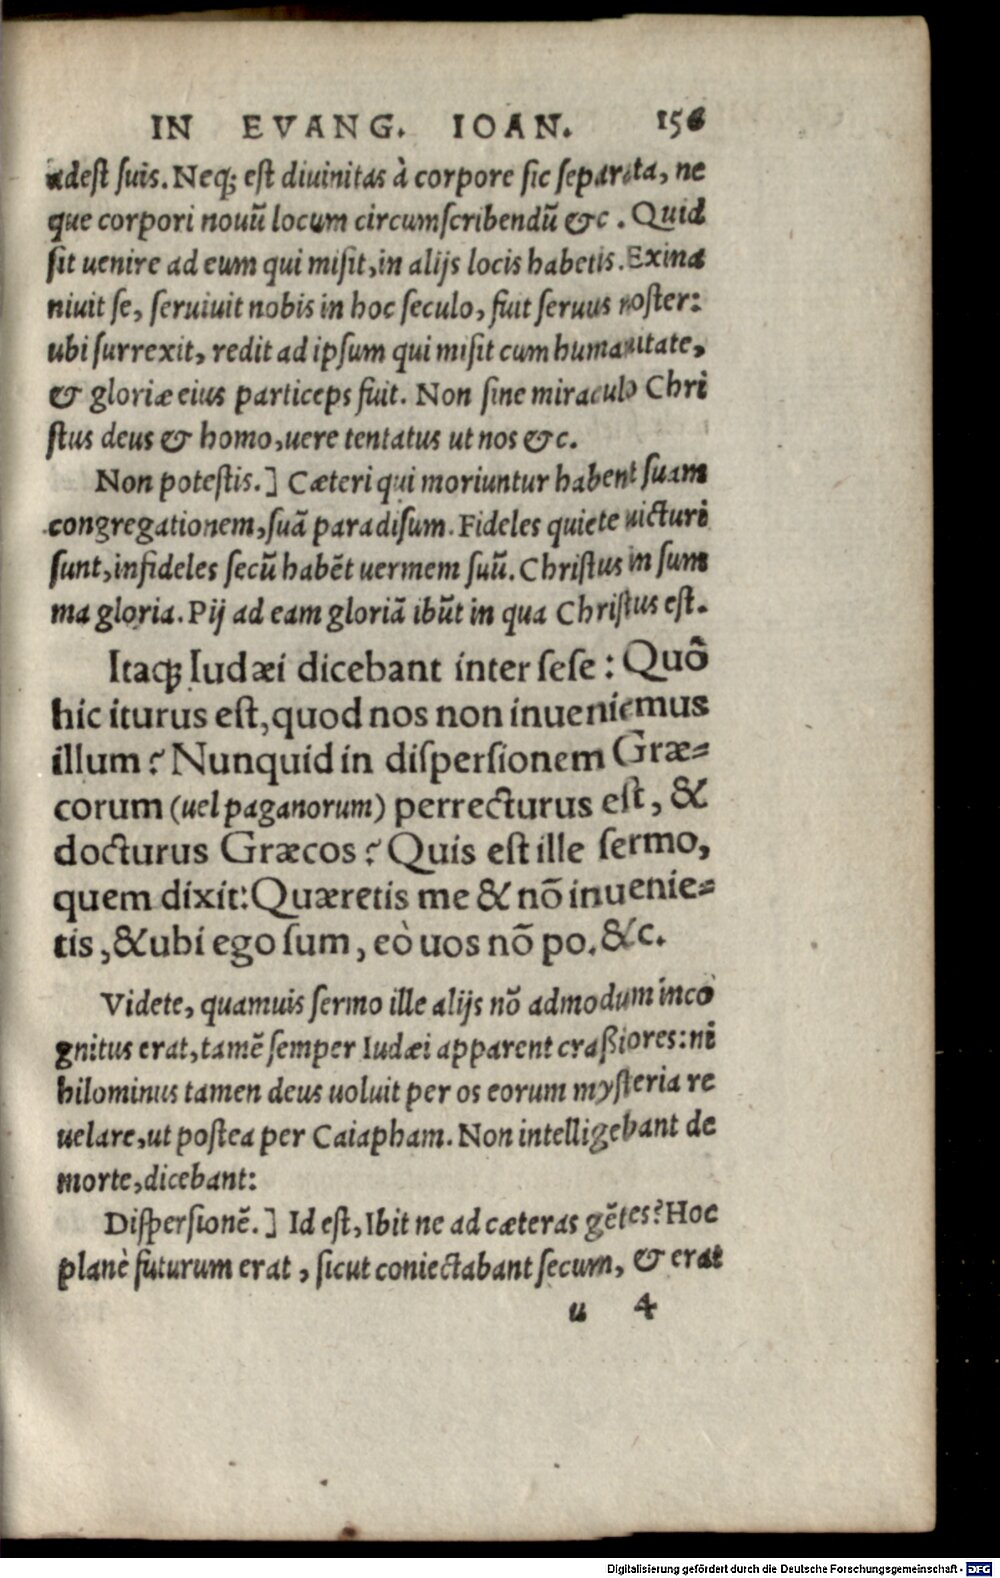 IN EVANG. IOAN. 156
adest suis. Neq; est diuinitas à corpore sic separata, ne
que corpori nouū locum circumscribendū &c. Quid
sit uenire ad eum qui misit, in alijs locis habetis. Exina
niuit se, seruiuit nobis in hoc seculo, fuit seruus noster:
ubi surrexit, redit ad ipsum qui misit cum humanitate,
& gloriæ eius particeps fuit. Non sine miraculo Chri
stus deus & homo, uere tentatus ut nos &c.
Non potestis.] Cæteri qui moriuntur habent suam
congregationem, suā paradisum. Fideles quiete uicturi
sunt, infideles secū habēt uermem suū. Christus in sum
ma gloria. Pij ad eam gloriā ibūt in qua Christus est.
Itaq; Iudæi dicebant inter sese: Quō
hic iturus est, quod nos non inueniemus
illum? Nunquid in dispersionem Græ=
corum (uel paganorum) perrecturus est, &
docturus Græcos? Quis est ille sermo,
quem dixit: Quæretis me & nō inuenie=
tis, & ubi ego sum, eò uos nō po. &c.
Videte, quamuis sermo ille alijs nō admodum inco
gnitus erat, tamē semper Iudæi apparent craßiores: ni
hilominus tamen deus uoluit per os eorum mysteria re
uelare, ut postea per Caiapham. Non intelligebant de
morte, dicebant:
Dispersionē.] Id est, Ibit ne ad cæteras gētes? Hoc
planè futurum erat, sicut coniectabant secum, & erat
u 4
Digitalisierung gefördert durch die Deutsche Forschungsgemeinschaft - DFG